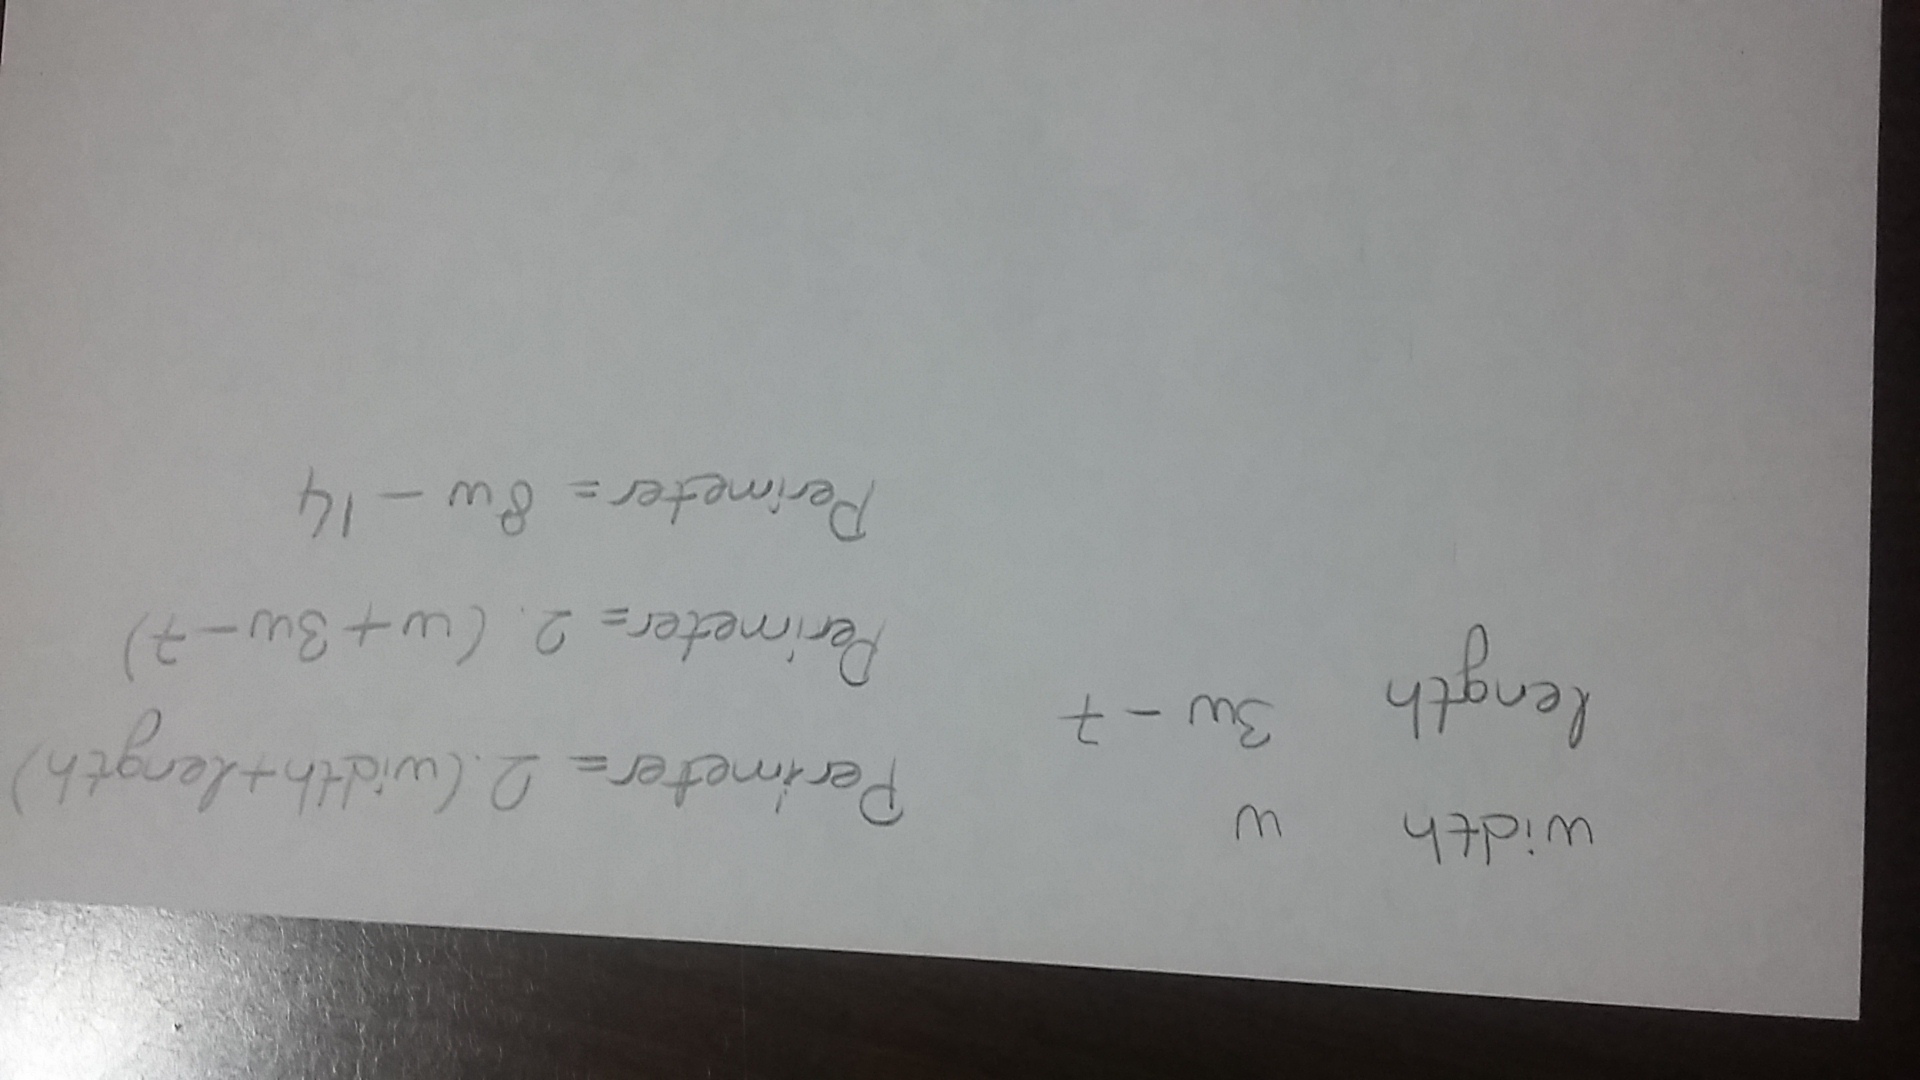 width w
length 3w - 7
Perimeter = 2.(width+length)
Perimeter = 2.(w + 3w - 7)
Perimeter = 8w - 14